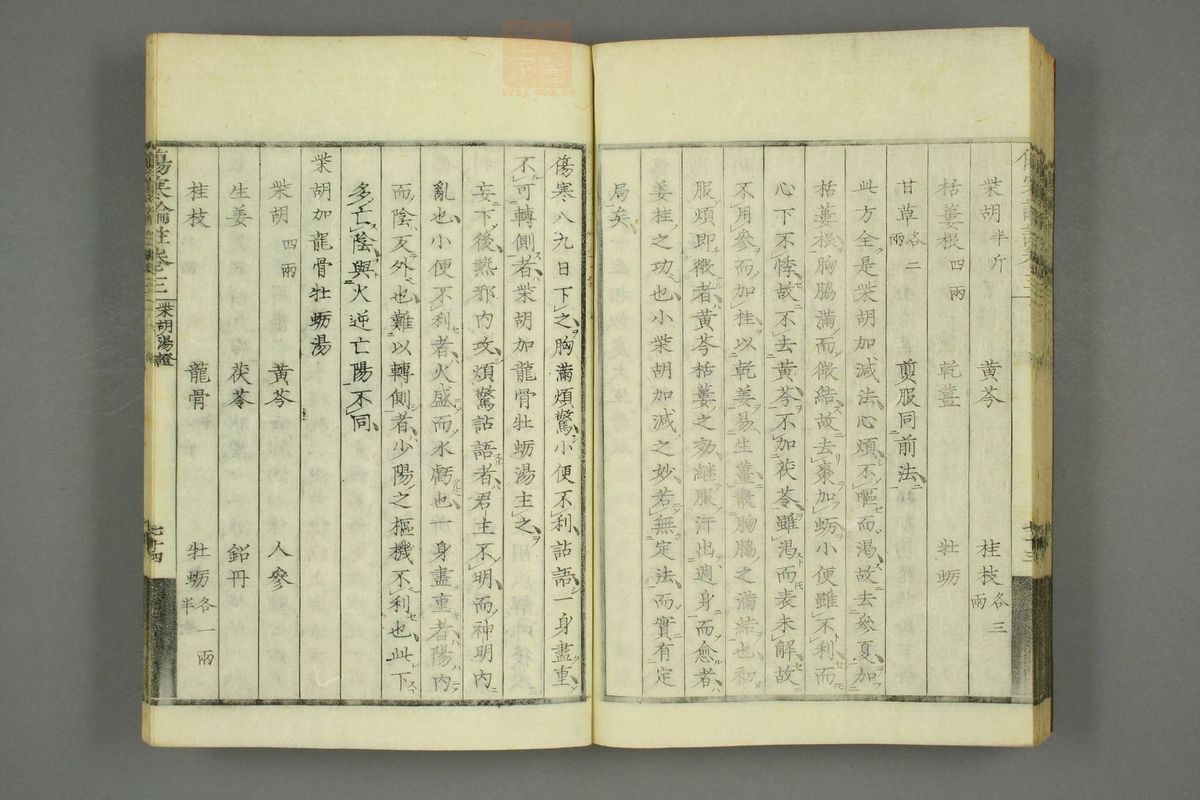 柴胡半斤　黃芩　桂枝各三兩
栝蔞根四兩　乾薑　牡蛎
甘草各二兩　煎服同前法
此方全是柴胡加減法心煩不嘔而渴故去參夏加
栝蔞根胸脇滿而微結故去棗加蛎小便雖不利而
心下不悸故不去黃芩不加茯苓雖渴而表未解故
不用參而加桂以乾姜易生薑散胸脇之滿結也初
服煩即微者黃芩栝蔞之効継服汗出週身而愈者
姜桂之功也小柴胡加減之妙若無定法而實有定
局矣
傷寒八九日下之胸滿煩驚小便不利詀語一身盡重
不可轉側者柴胡加龍骨牡蛎湯主之
妄下後熱邪内攻煩驚詀語者君主不明而神明内
亂也小便不利者火盛而水虧也一身盡重者陽内
而陰反外也難以轉側者少陽之樞機不利也此下
多亡陰與火逆亡陽不同
柴胡加龍骨牡蛎湯
柴胡四兩　黃芩　人參
生姜　茯苓　鉛丹
桂枝　龍骨　牡蛎各一兩半
傷寒論註卷三　柴胡湯證　七十四